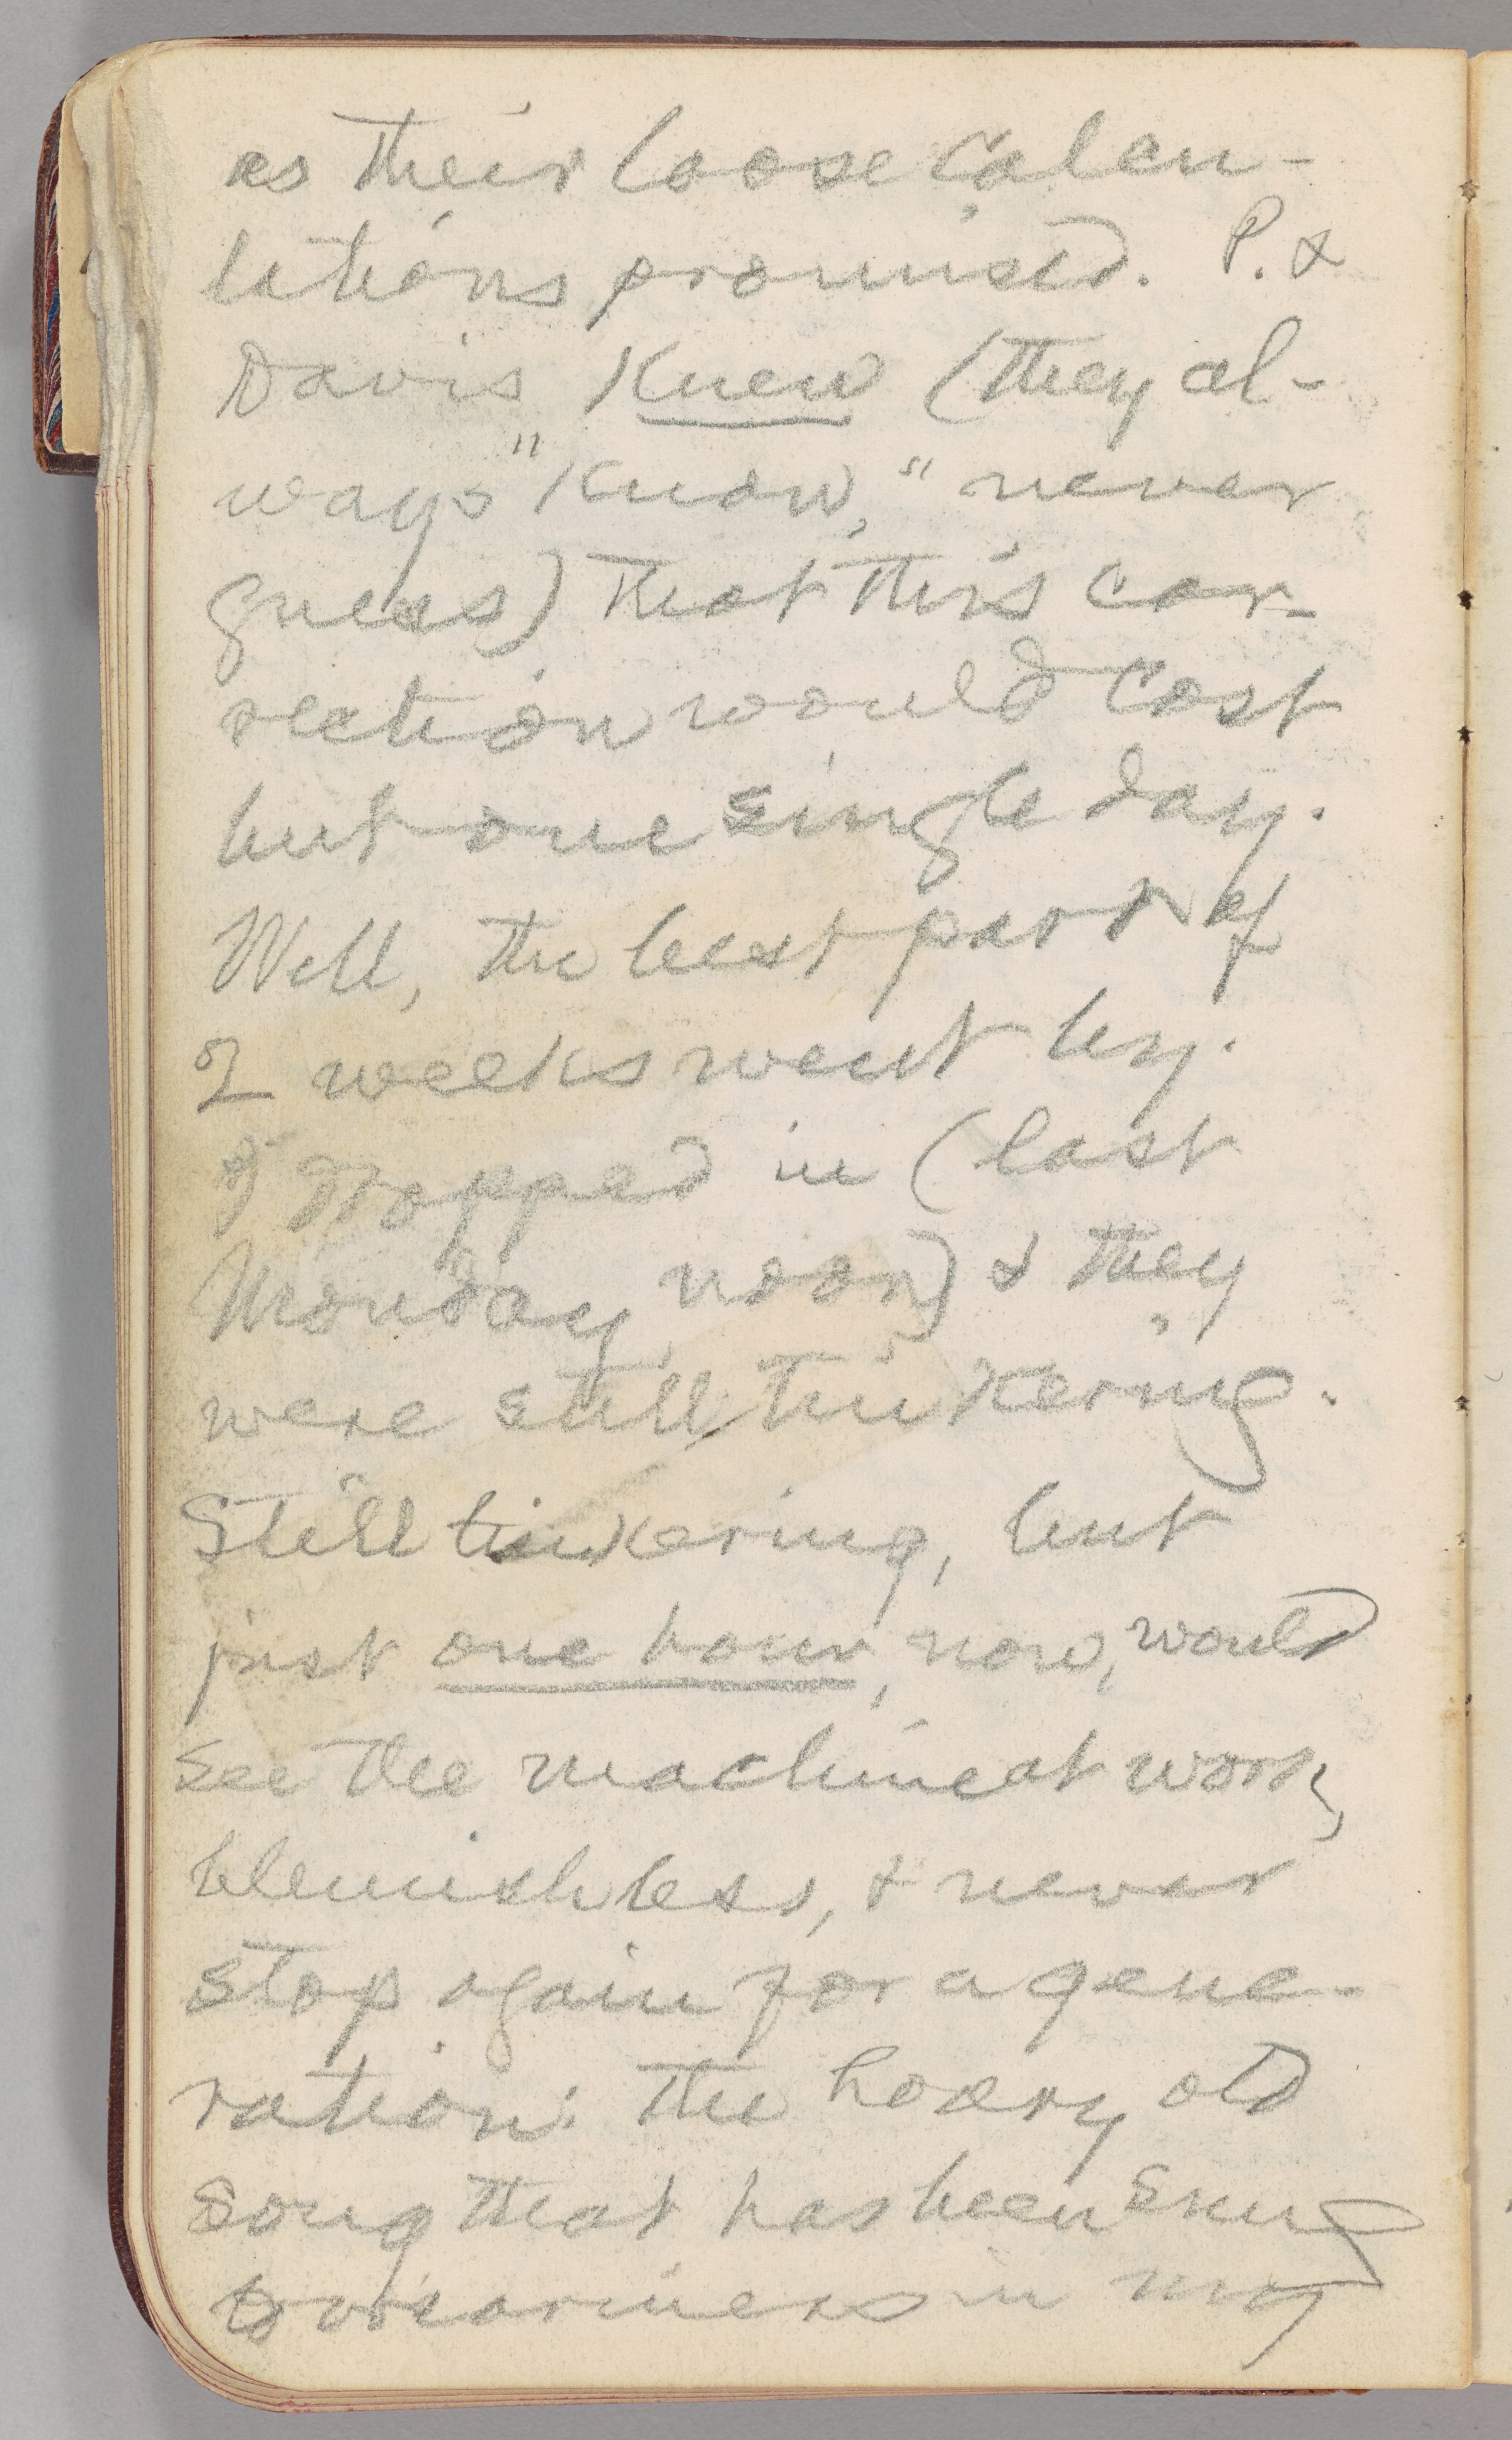 as their loose calcu-
lations promised. P. &
Davis knew (they al-
ways "know," never
guess) that this cor-
rection would cost
but one single day.
Well, the best part of
2 weeks went by.
I dropped in (last
Monday noon) & they
were still tinkering.
Still tinkering, but
just one hour, now, would
see the machine at work,
blemishless, & never
stop again for a gene-
ration: the hoary old
song that has been sung
to weariness in my